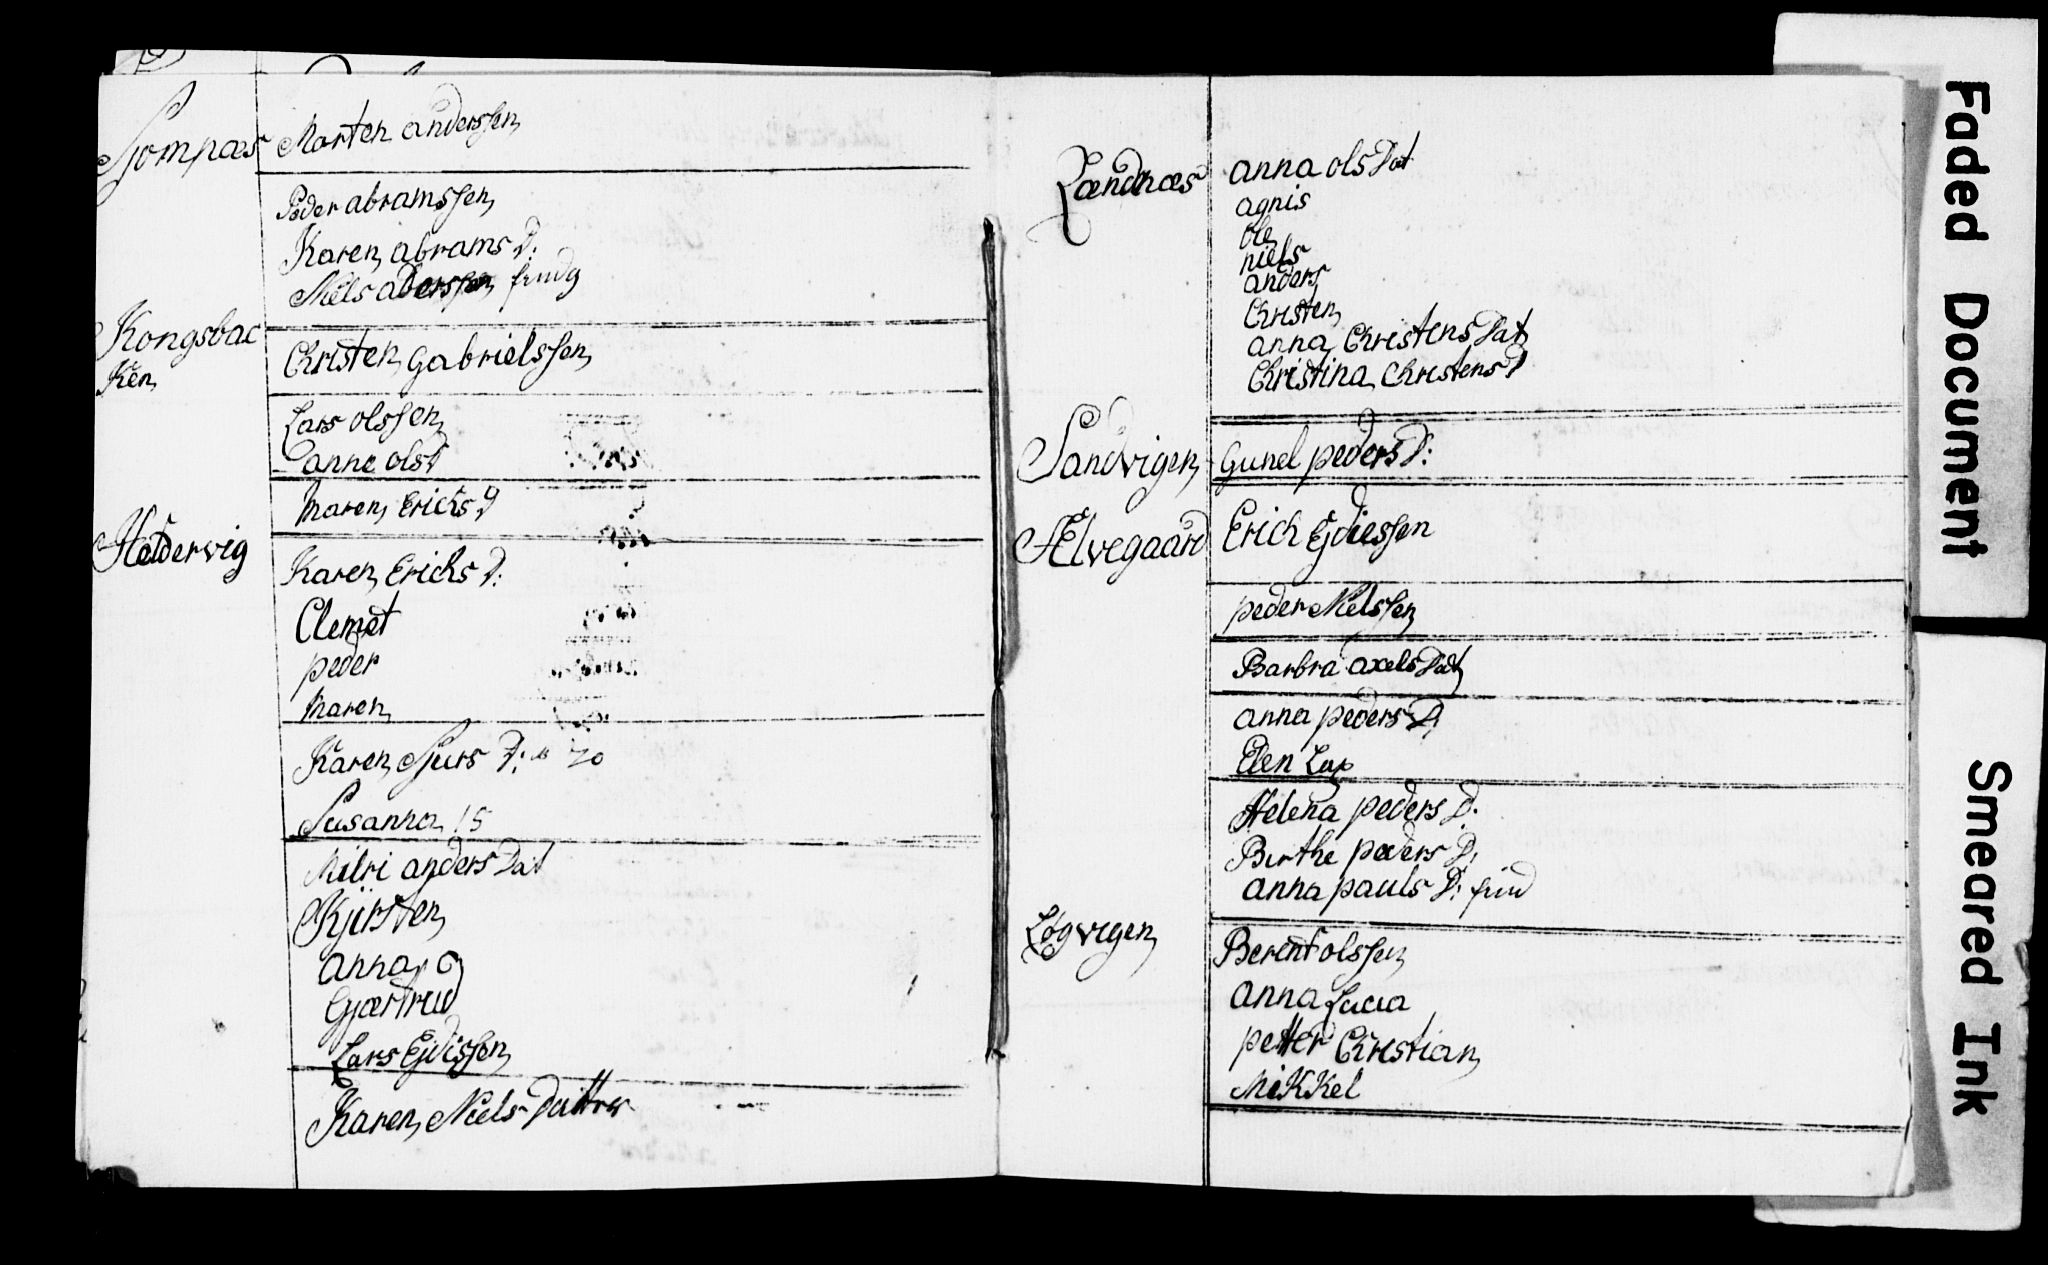 Sjompæs
Morten anderssen
Peder abramssen
Karen abrams D:
Niels aberssen
Kongsbac
Ken
Christen Gabrielssen
Lars olssen
anne olsd
Maren Erichs D
Heldervig
Karen Erichs D:
Clemet
peder
Maren
Karen Sjurs D: 20
Susanna 15
Milri anders Dat
Kjirsten
anna
Gjærtrud
Lars Ejdissen
Karen Niels Datter
Lændnæs
anna ols Dat
agnis
Ole
niels
anders
Christen
anna Christens Dat
Christina Christens D
Sandvigen
Gunel peders D:
Ælvegaard
Erich Ejdiessen
peder Nielssen
Barbra axels Dat
anna peders D
Elen Lap
Helena peders D.
Birthe peders D.
anna pauls D:
Løgvigen
Berent olssen
anna Lucia
petter Christian
Mikkel
Faded Document
Smeared Ink